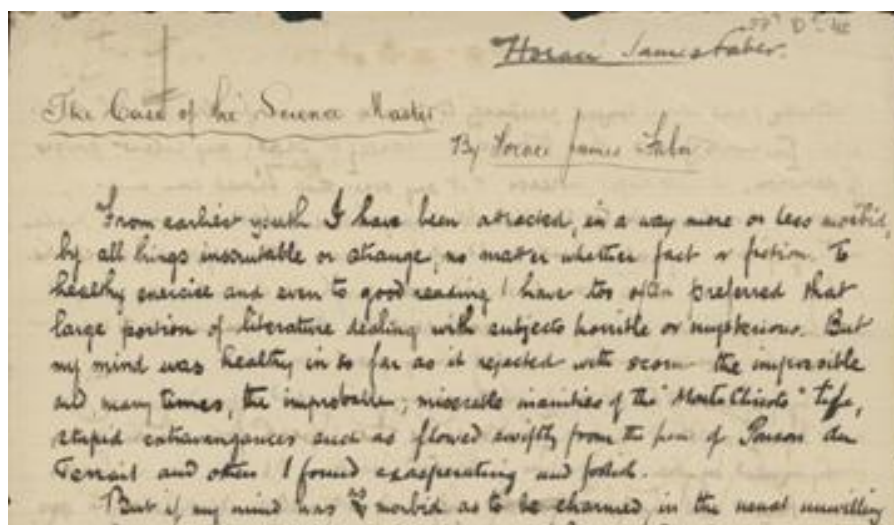 Horace James Faber.
The Case of the Science Master
By Horace James Faber
From earliest youth I have been attracted, in a way more or less morbid,
by all things inscrutable or strange, no matter whether fact or fiction. To
healthy exercise and even to good reading I have too often preferred that
large portion of literature dealing with subjects horrible or mysterious. But
my mind was healthy in so far as it rejected with scorn the impossible
and, many times, the improbable; miserable inanities of the "Monte Christo" type,
stupid extravagances such as flowed swiftly from the pen of Ponson du
Terrail and others I found exasperating and foolish.
But if my mind was so morbid as to be charmed, in the usual unwilling